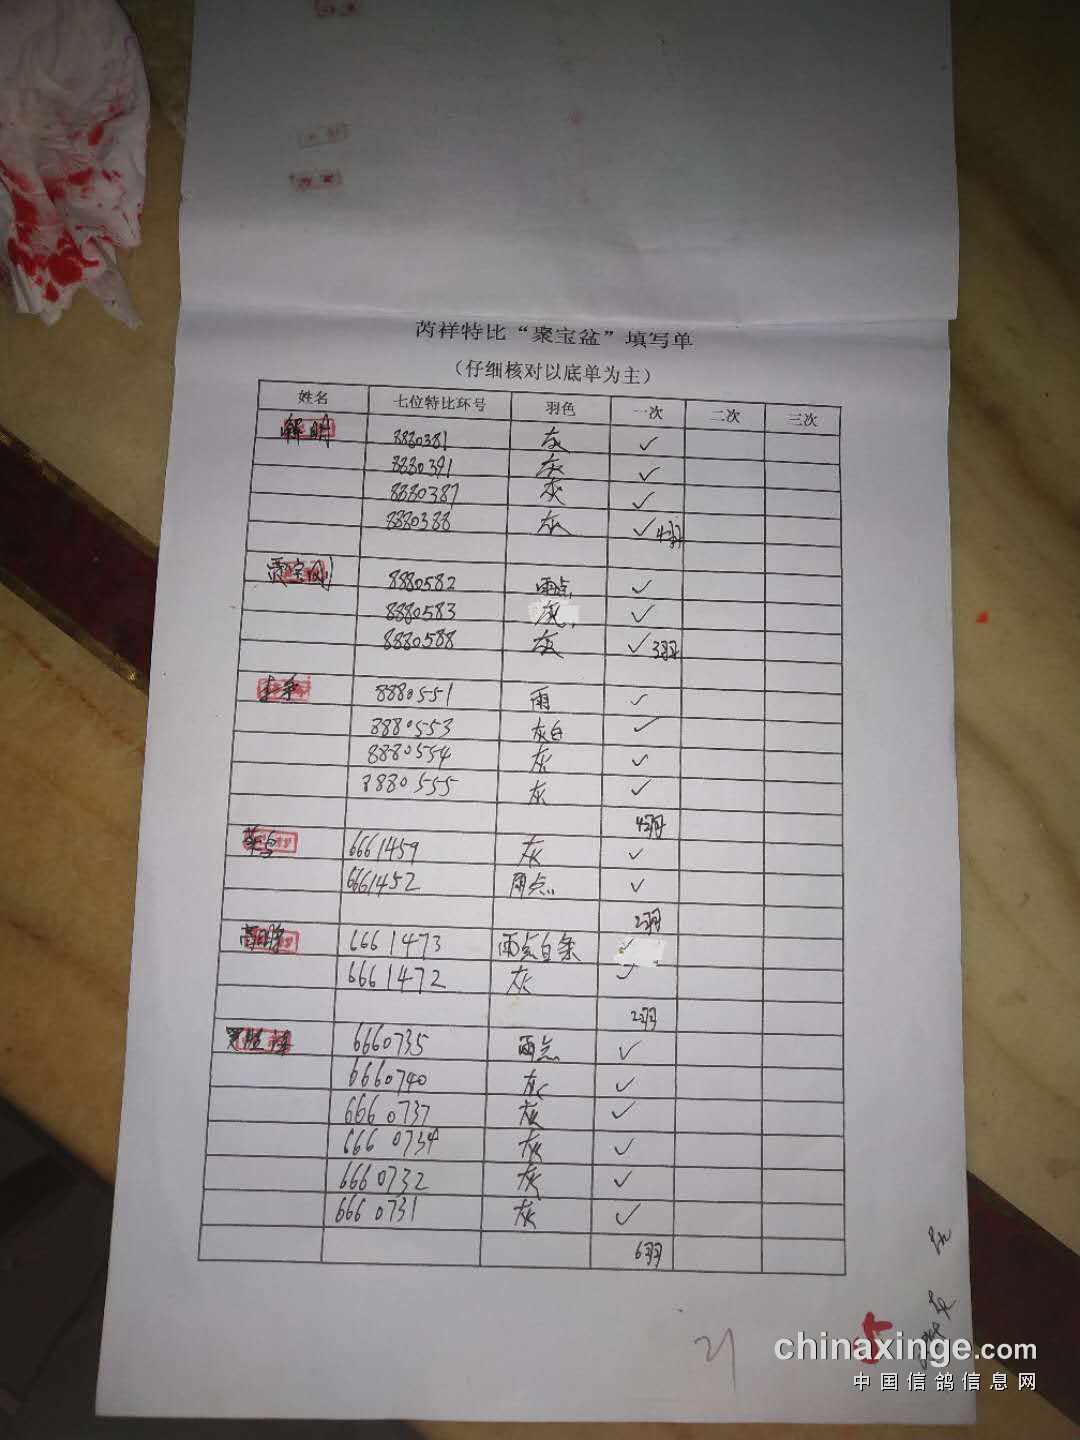 芮祥特比“聚宝盆”填写单
（仔细核对以底单为主）
姓名 七位特比环号 羽色 一次 二次 三次
8880381 灰 ✓
8880391 灰 ✓
8880387 灰 ✓
8880388 灰 ✓ 4羽
8880582 雨点 ✓
8880583 灰 ✓
8880588 灰 ✓ 3羽
8880551 雨 ✓
8880553 灰白 ✓
8880554 灰 ✓
8880555 灰 ✓
4羽
6661459 灰 ✓
6661452 雨点 ✓
2羽
6661473 雨点白条 ✓
6661472 灰 ✓
2羽
6660735 雨点 ✓
6660740 灰 ✓
6660737 灰 ✓
6660734 灰 ✓
6660732 灰 ✓
6660731 灰 ✓
6羽
21
5
chinaxinge.com
中国信鸽信息网